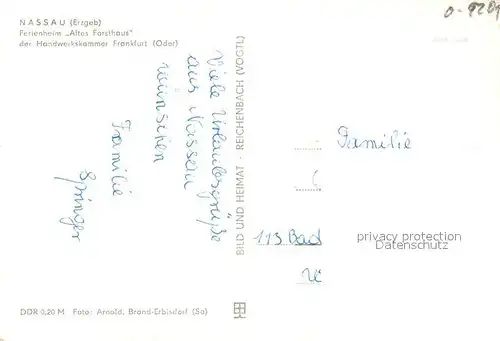 NASSAU (Erzgeb)
Ferienheim „Altes Forsthaus"
der Handwerkskammer Frankfurt (Oder)
o-9289
Viele Urlaubsgrüße
aus Nassau
wünschen
Familie
Springer
BILD UND HEIMAT · REICHENBACH (VOGTL)
Familie
113 Bad
privacy protection
Datenschutz
DDR 0,20 M Foto: Arnold, Brand-Erbisdorf (Sa)